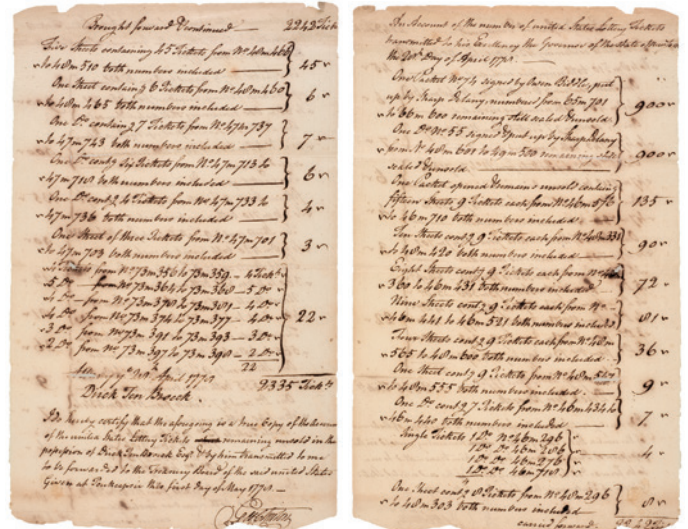 Brought forward & continued — 2242 Tick.
Five Sheets containing 45 Tickets from No. 48m466
to 48m510 both numbers included — } 45
One Sheet contain.g 6 Tickets from No. 48m460
to 48m465 both numbers included — } 6
One Do. contain.g 7 Tickets from No. 47m737
to 47m743 both numbers included — } 7
One Do. cont.g Six Tickets from No. 47m713 to
47m718 both numbers included — } 6
One Do. cont.g 4 Tickets from No. 47m733 to
47m736 both numbers included — } 4
One Sheet of three Tickets from No. 47m701
to 47m703 both numbers included — } 3
4 Tickets from No. 73m356 to 73m359 — 4 Tick.ts
5 Do. from No. 73m364 to 73m368 — 5 Do.
4 Do. from No. 73m378 to 73m381 — 4 Do.
4 Do. from No. 73m374 to 73m377 — 4 Do. } 22
3 Do. from No. 73m391 to 73m393 — 3 Do.
2 Do. from No. 73m397 to 73m398 — 2 Do.
22
April 1778 2335 Tick.ts
Dirck Ten Broeck.
I do hereby certify that the aforegoing is a true Copy of the
of the united States Lottery Tickets remaining unsold in the
possession of Dirck Ten Broeck Esqr. & by him transmitted to me
to be forwarded to the Treasury Board of the said united States
Given at Poukeepsie this first Day of May 1778. —
An Account of the number of united States Lottery Tickets
transmitted to his Excellency the Governor of the State of
the 20th Day of April 1778.
One Packet No. 74 signed by Owen Biddle, put
up by Sharp Delany, numbered from 65m701
to 66m600 remaining still sealed & unsold } 900
One Do. No. 55 signed & put up by Sharp Delany
from No. 48m601 to 49m500 remaining
sealed & unsold — } 900
One Packet opened & remain.g unsold contain.g
fifteen Sheets 9 Tickets each from No. 46m576
to 46m710 both numbers included — } 135
Ten Sheets cont.g 9 Tickets each from No. 48m331
to 48m420 both numbers included — } 90
Eight Sheets cont.g 9 Tickets each from No.
360 to 46m431 both numbers included — } 72
Nine Sheets cont.g 9 Tickets each from No.
46m441 to 46m521 both numbers included } 81
Four Sheets cont.g 9 Tickets each from No. 48m
565 to 48m600 both numbers included — } 36
One Sheet cont.g 9 Tickets from No. 48m547
to 48m555 both numbers included — } 9
One Do. cont.g 7 Tickets from No. 46m434 to
46m440 both numbers included — } 7
Single Tickets 1 Do. No. 46m296
1 Do. Do. 46m286
1 Do. Do. 46m276 } 4
1 Do. Do. 46m718
One Sheet cont.g 8 Tickets from No. 48m296
to 48m303 both numbers included — } 8
carried forward 2242